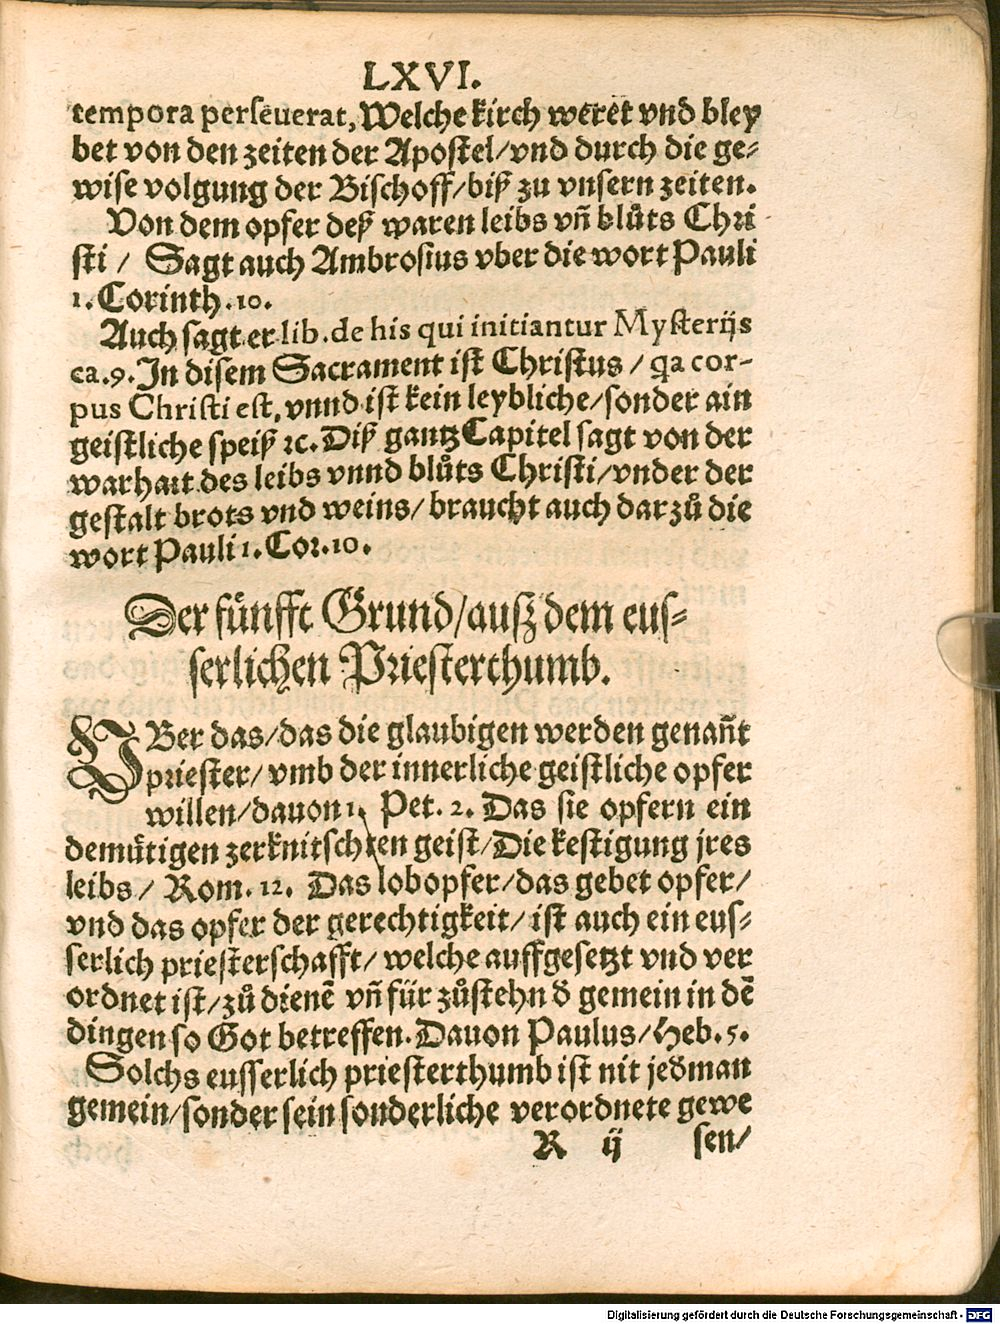 LXVI.
tempora perseuerat, Welche kirch weret vnd bley
bet von den zeiten der Apostel/vnd durch die ge⸗
wise volgung der Bischoff/biß zu vnsern zeiten.
Von dem opfer deß waren leibs vñ blůts Chri
sti / Sagt auch Ambrosius vber die wort Pauli
1. Corinth. 10.
Auch sagt er lib. de his qui initiantur Mysterijs
ca. 9. In disem Sacrament ist Christus / qa cor-
pus Christi est, vnnd ist kein leybliche/sonder ain
geistliche speiß ꝛc. Diß gantz Capitel sagt von der
warhait des leibs vnnd blůts Christi/vnder der
gestalt brots vnd weins/ braucht auch darzů die
wort Pauli 1. Cor. 10.
Der fünfft Grund/auß dem eus⸗
serlichen Priesterthumb.
VBer das/das die glaubigen werden genañt
priester/ vmb der innerliche geistliche opfer
willen/dauon 1. Pet. 2. Das sie opfern ein
demütigen zerknitschten geist/Die kestigung jres
leibs / Rom. 12. Das lobopfer/das gebet opfer/
vnd das opfer der gerechtigkeit/ ist auch ein eus⸗
serlich priesterschafft/ welche auffgesetzt vnd ver
ordnet ist/zů dienẽ vñ für zůstehn d̕ gemein in dẽ
dingen so Got betreffen. Dauon Paulus/Heb. 5.
Solchs eusserlich priesterthumb ist nit jed̕man
gemein/sonder sein sonderliche verordnete gewe
R ij sen/
Digitalisierung gefördert durch die Deutsche Forschungsgemeinschaft - DFG